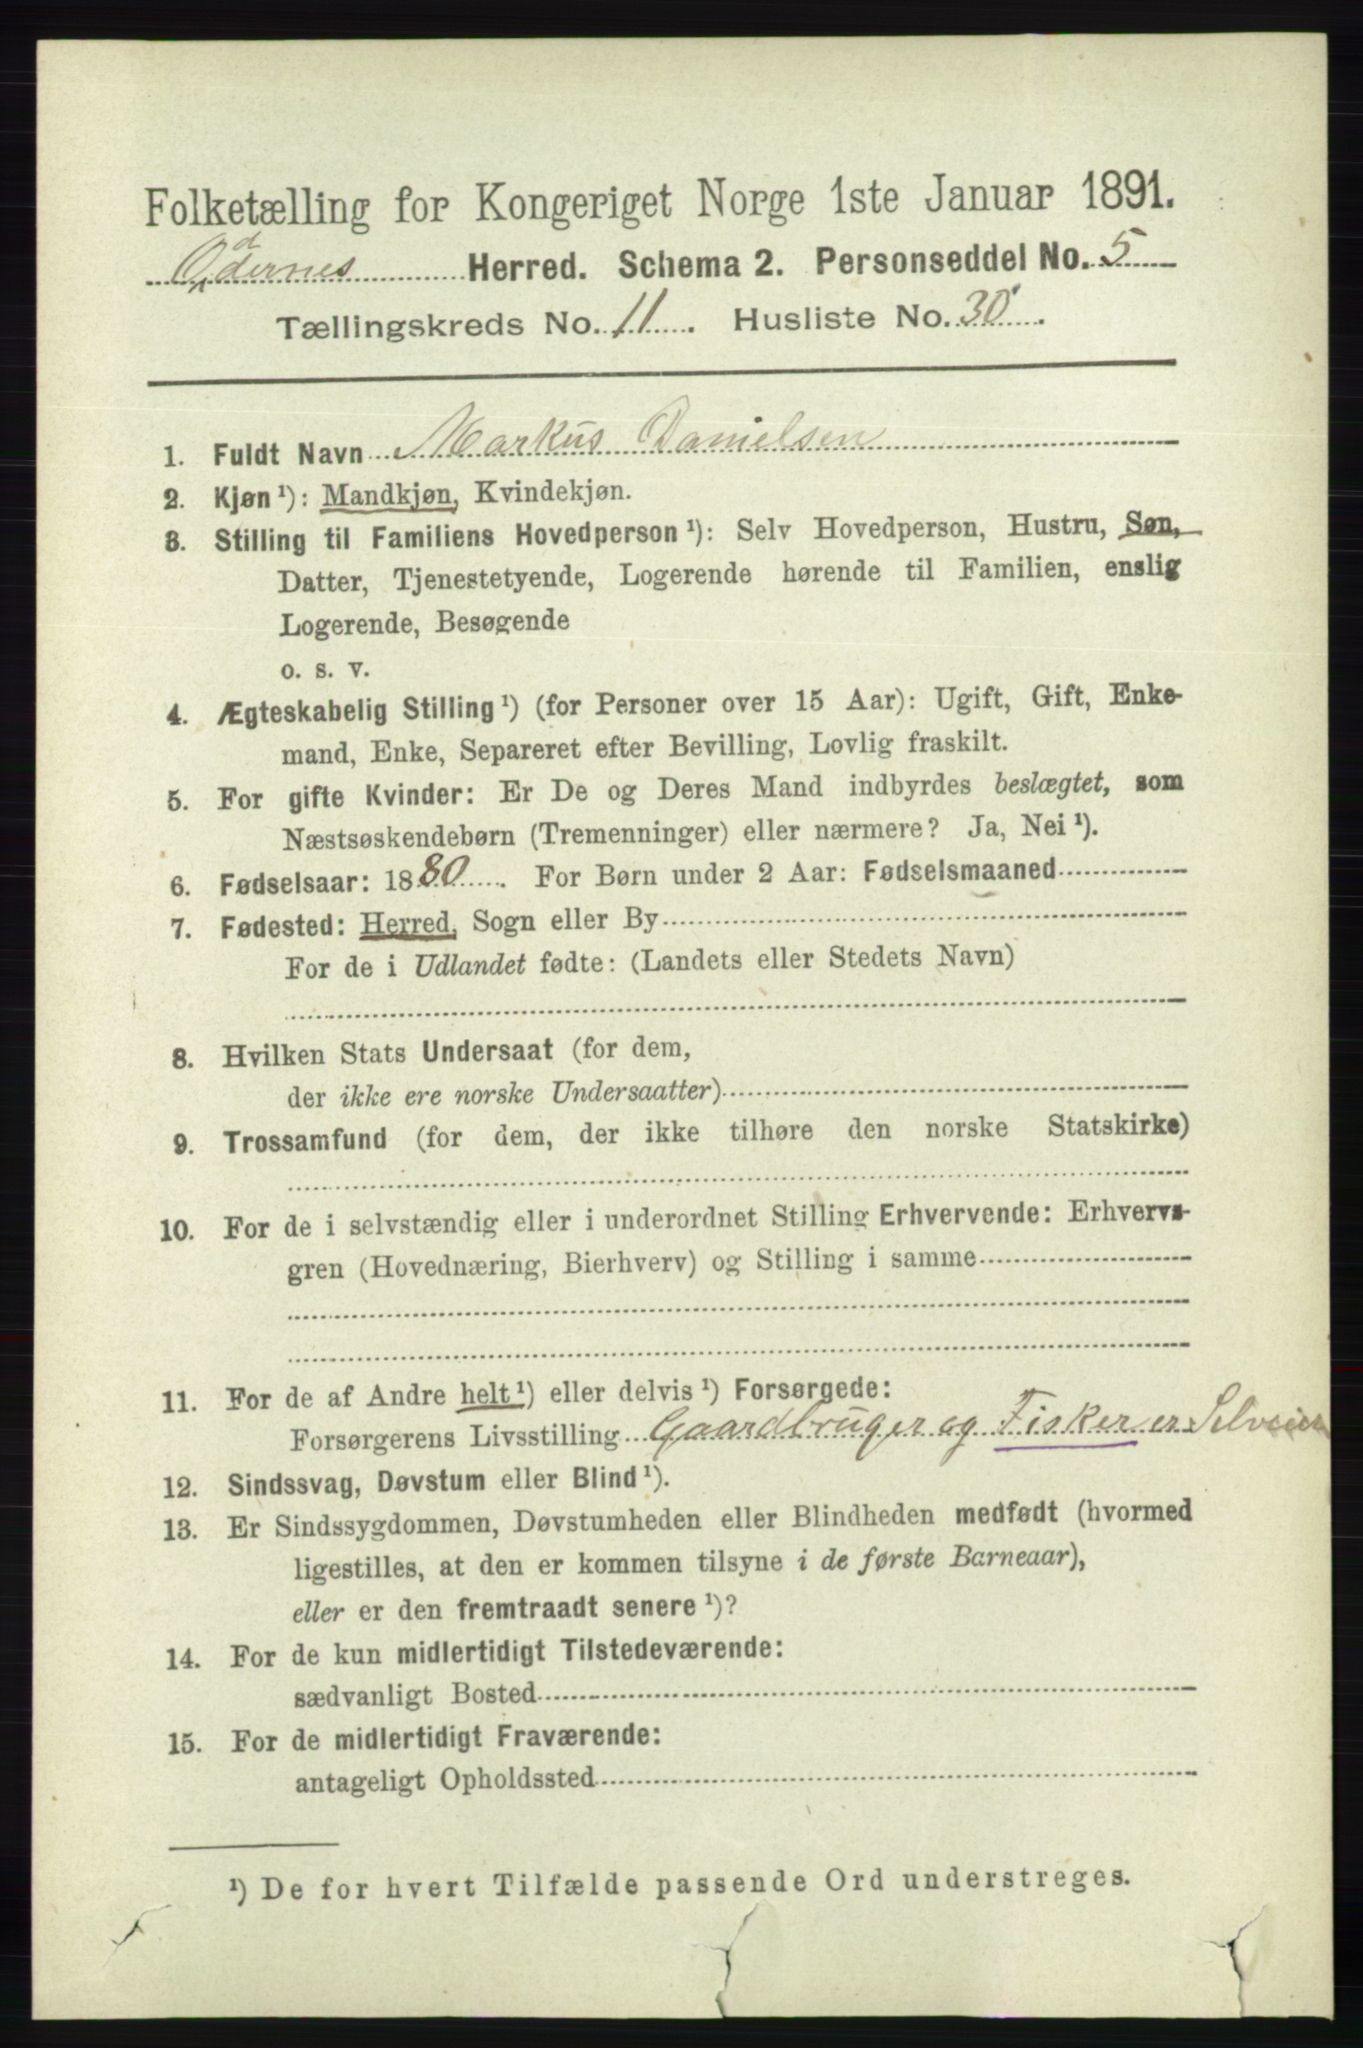 Folketælling for Kongeriget Norge 1ste Januar 1891.
Oddernes Herred. Schema 2. Personseddel No. 5
Tællingskreds No. 11. Husliste No. 30.
1. Fuldt Navn Markus Danielsen
2. Kjøn ¹): Mandkjøn, Kvindekjøn.
3. Stilling til Familiens Hovedperson ¹): Selv Hovedperson, Hustru, Søn,
Datter, Tjenestetyende, Logerende hørende til Familien, enslig
Logerende, Besøgende
o. s. v.
4. Ægteskabelig Stilling ¹) (for Personer over 15 Aar): Ugift, Gift, Enke-
mand, Enke, Separeret efter Bevilling, Lovlig fraskilt.
5. For gifte Kvinder: Er De og Deres Mand indbyrdes beslægtet, som
Næstsøskendebørn (Tremenninger) eller nærmere? Ja, Nei ¹).
6. Fødselsaar: 1880. For Børn under 2 Aar: Fødselsmaaned
7. Fødested: Herred, Sogn eller By
For de i Udlandet fødte: (Landets eller Stedets Navn)
8. Hvilken Stats Undersaat (for dem,
der ikke ere norske Undersaatter)
9. Trossamfund (for dem, der ikke tilhøre den norske Statskirke)
10. For de i selvstændig eller i underordnet Stilling Erhvervende: Erhvervs-
gren (Hovednæring, Bierhverv) og Stilling i samme
11. For de af Andre helt ¹) eller delvis ¹) Forsørgede:
Forsørgerens Livsstilling Gaardbruger og Fisker er Selveier
12. Sindssvag, Døvstum eller Blind ¹).
13. Er Sindssygdommen, Døvstumheden eller Blindheden medfødt (hvormed
ligestilles, at den er kommen tilsyne i de første Barneaar),
eller er den fremtraadt senere ¹)?
14. For de kun midlertidigt Tilstedeværende:
sædvanligt Bosted
15. For de midlertidigt Fraværende:
antageligt Opholdssted
¹) De for hvert Tilfælde passende Ord understreges.